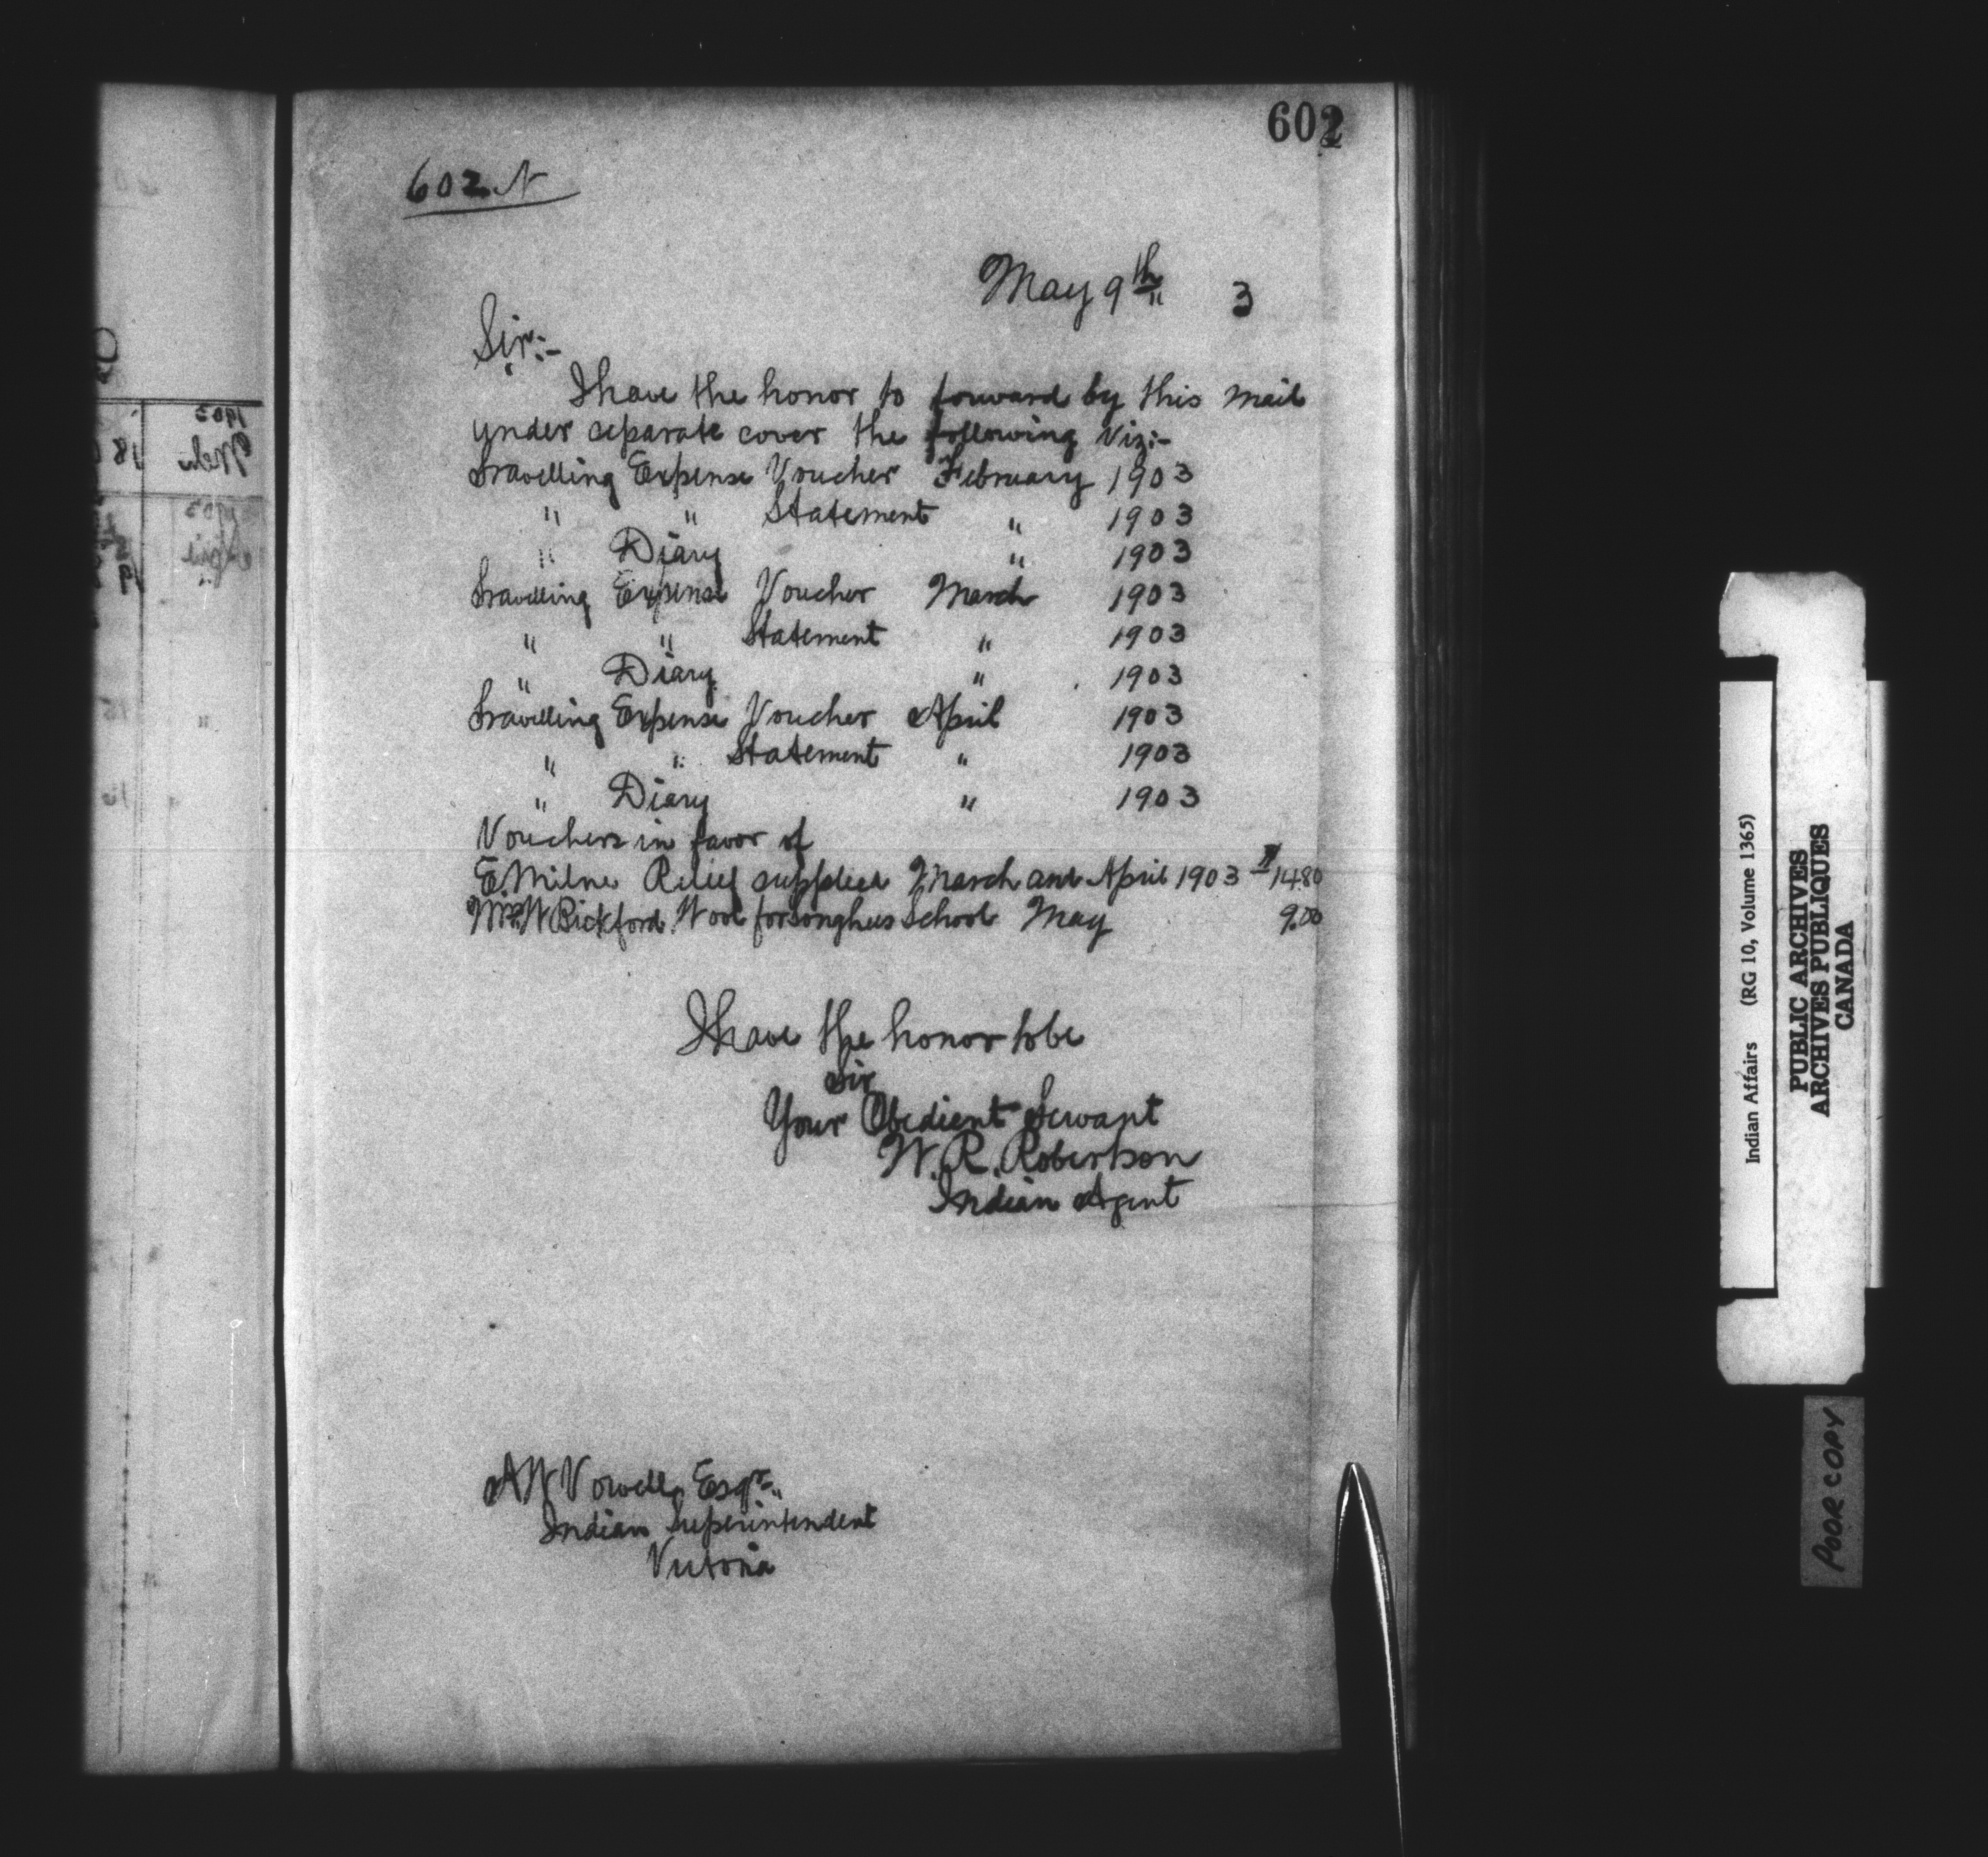 602
602 N
May 9th 3
Sir:-
I have the honor to forward by this mail
under separate cover the following Viz:-
Travelling Expense Voucher February 1903
" " Statement " 1903
" Diary " 1903
Travelling Expense Voucher March 1903
" " Statement " 1903
" Diary " 1903
Travelling Expense Voucher April 1903
" " Statement " 1903
" Diary " 1903
Vouchers in favor of
E. Milne Relief supplied March and April 1903 $14.80
W Bickford Wood for Songhees School May 9.00
I have the honor to be
Sir
Your Obedient Servant
W. R. Robertson
Indian Agent
A W Vowell Esqr.
Indian Superintendent
Victoria
Indian Affairs (RG 10, Volume 1365)
PUBLIC ARCHIVES
ARCHIVES PUBLIQUES
CANADA
POOR COPY